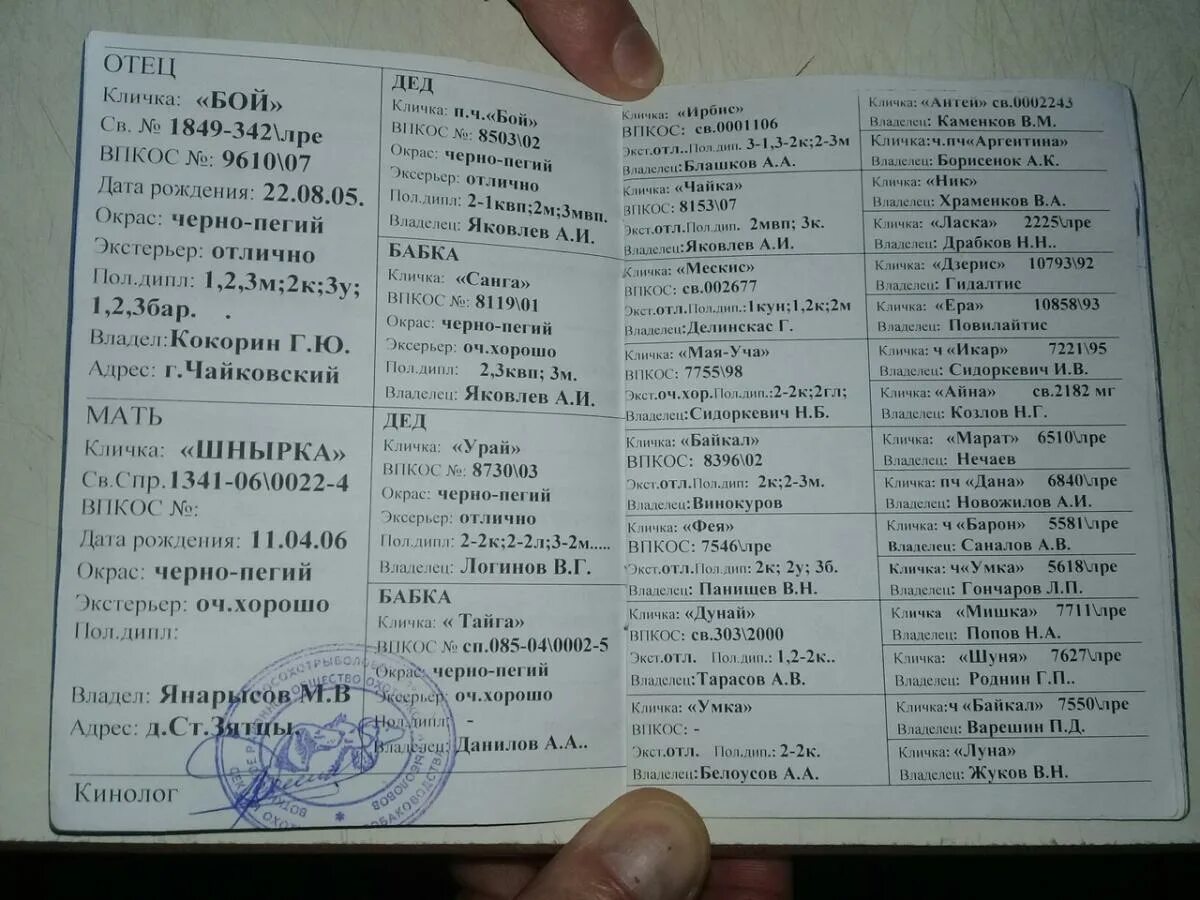 ОТЕЦ
Кличка: «БОЙ»
Св. № 1849-342\лре
ВПКОС №: 9610\07
Дата рождения: 22.08.05.
Окрас: черно-пегий
Экстерьер: отлично
Пол.дипл: 1,2,3м;2к;3у;
1,2,3бар. .
Владел:Кокорин Г.Ю.
Адрес: г.Чайковский
МАТЬ
Кличка: «ШНЫРКА»
Св.Спр.1341-06\0022-4
ВПКОС №:
Дата рождения: 11.04.06
Окрас: черно-пегий
Экстерьер: оч.хорошо
Пол.дипл:
Владел: Янарысов М.В
Адрес: д.Ст.Зятцы.
Кинолог
ДЕД
Кличка: п.ч.«Бой»
ВПКОС №: 8503\02
Окрас: черно-пегий
Эксерьер: отлично
Пол.дипл: 2-1квп;2м;3мвп.
Владелец: Яковлев А.И.
БАБКА
Кличка: «Санга»
ВПКОС №: 8119\01
Окрас: черно-пегий
Эксерьер: оч.хорошо
Пол.дипл: 2,3квп; 3м.
Владелец: Яковлев А.И.
ДЕД
Кличка: «Урай»
ВПКОС №: 8730\03
Окрас: черно-пегий
Эксерьер: отлично
Пол.дипл: 2-2к;2-2л;3-2м.....
Владелец: Логинов В.Г.
БАБКА
Кличка: « Тайга»
ВПКОС № сп.085-04\0002-5
Окрас: черно-пегий
Эксерьер: оч.хорошо
Пол.дипл: -
Владелец: Данилов А.А..
Кличка: «Ирбис»
ВПКОС: св.0001106
Экст.отл..Пол.дип. 3-1,3-2к;2-3м
Владелец:Блашков А.А.
Кличка: «Чайка»
ВПКОС: 8153\07
Экст.отл.Пол.дип. 2мвп; 3к.
Владелец:Яковлев А.И.
Кличка: «Мескис»
ВПКОС: св.002677
Экст.отл.Пол.дип.:1кун;1,2к;2м
Владелец:Делинскас Г.
Кличка: «Мая-Уча»
ВПКОС: 7755\98
Экст.оч.хор.Пол.дип.:2-2к;2гл;
Владелец:Сидоркевич Н.Б.
Кличка: «Байкал»
ВПКОС: 8396\02
Экст.отл.Пол.дип: 2к;2-3м.
Владелец:Винокуров
Кличка: «Фея»
ВПКОС: 7546\лре
Экст.отл.Пол.дип: 2к; 2у; 3б.
Владелец: Панищев В.Н.
Кличка: «Дунай»
ВПКОС: св.303\2000
Экст.отл. Пол.дип.: 1,2-2к..
Владелец:Тарасов А.В.
Кличка: «Умка»
ВПКОС: -
Экст.отл. Пол.дип.: 2-2к.
Владелец:Белоусов А.А.
Кличка: «Антей» св.0002243
Владелец: Каменков В.М.
Кличка:ч.пч«Аргентина»
Владелец: Борисенок А.К.
Кличка: «Ник»
Владелец: Храменков В.А.
Кличка: «Ласка» 2225\лре
Владелец: Драбков Н.Н..
Кличка: «Дзерис» 10793\92
Владелец: Гидалтис
Кличка: «Ера» 10858\93
Владелец: Повилайтис
Кличка: ч «Икар» 7221\95
Владелец: Сидоркевич И.В.
Кличка: «Айна» св.2182 мг
Владелец: Козлов Н.Г.
Кличка: «Марат» 6510\лре
Владелец: Нечаев
Кличка: пч «Дана» 6840\лре
Владелец: Новожилов А.И.
Кличка: ч «Барон» 5581\лре
Владелец: Саналов А.В.
Кличка: ч«Умка» 5618\лре
Владелец: Гончаров Л.П.
Кличка «Мишка» 7711\лре
Владелец: Попов Н.А.
Кличка: «Шуня» 7627\лре
Владелец: Роднин Г.П..
Кличка:ч «Байкал» 7550\лре
Владелец: Варешин П.Д.
Кличка: «Луна»
Владелец: Жуков В.Н.